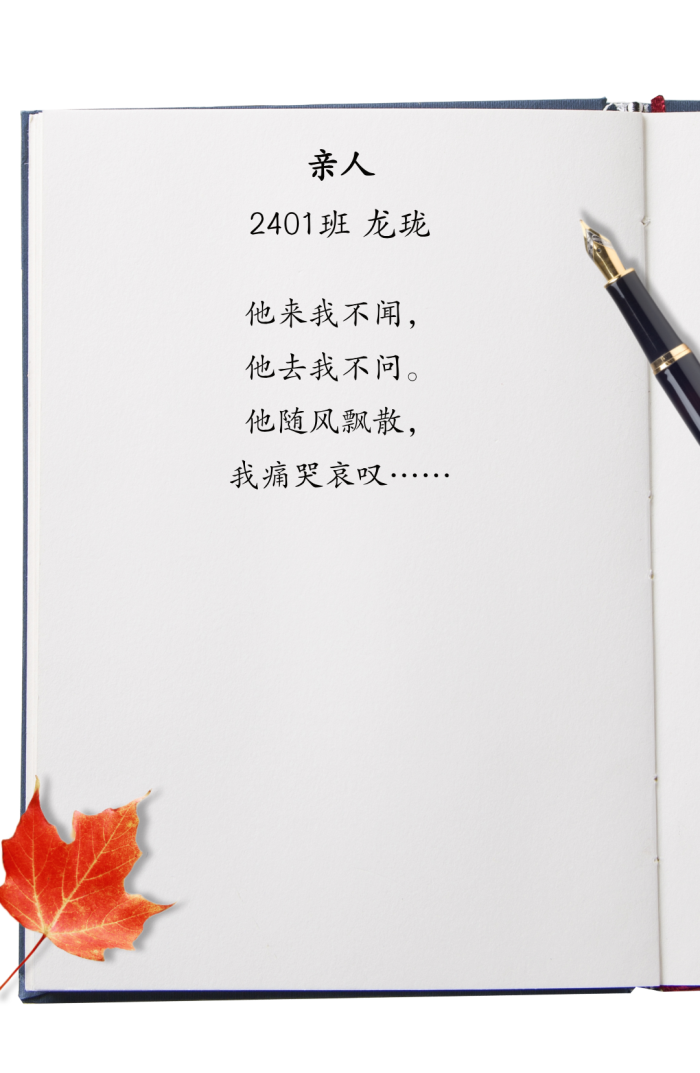 亲人
2401班 龙珑
他来我不闻，
他去我不问。
他随风飘散，
我痛哭哀叹……